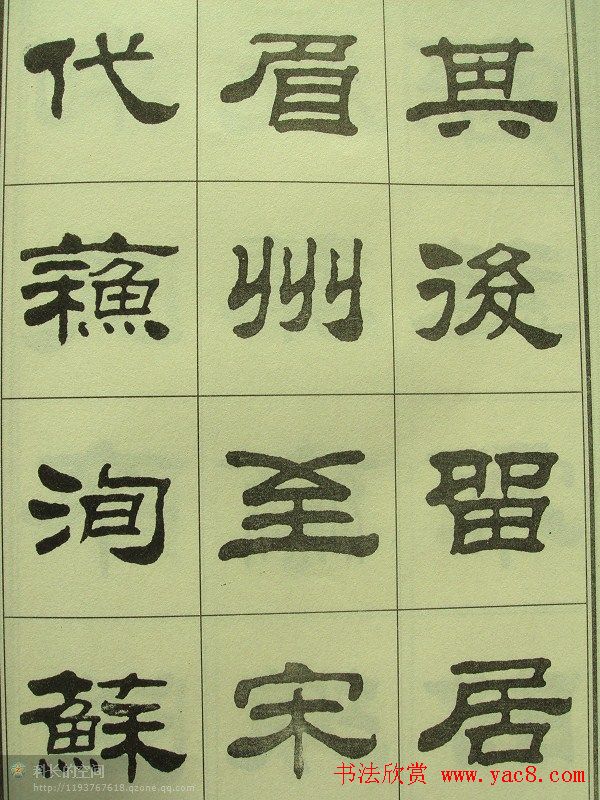 其後留居
眉州至宋
代蘇洵蘇
科长的空间
http://1193767618.qzone.qq.com
书法欣赏 www.yac8.com